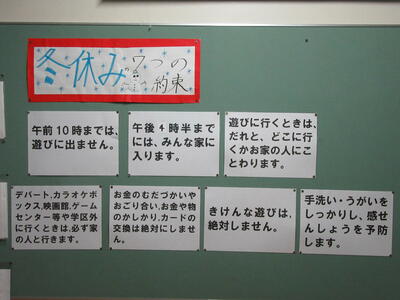 冬休み 7つの約束
午前10時までは、
遊びに出ません。
午後4時半まで
には、みんな家に
入ります。
遊びに行くときは、
だれと、どこに行
くかお家の人にこ
とわります。
デパート,カラオケボ
ックス,映画館,ゲーム
センター等や学区外
に行くときは,必ず家
の人と行きます。
お金のむだづかいや
おごり合い,お金や物
のかしかり,カードの
交換は絶対にしませ
ん。
きけんな遊びは,
絶対しません。
手洗い・うがいを
しっかりし、感せ
んしょうを予防
します。